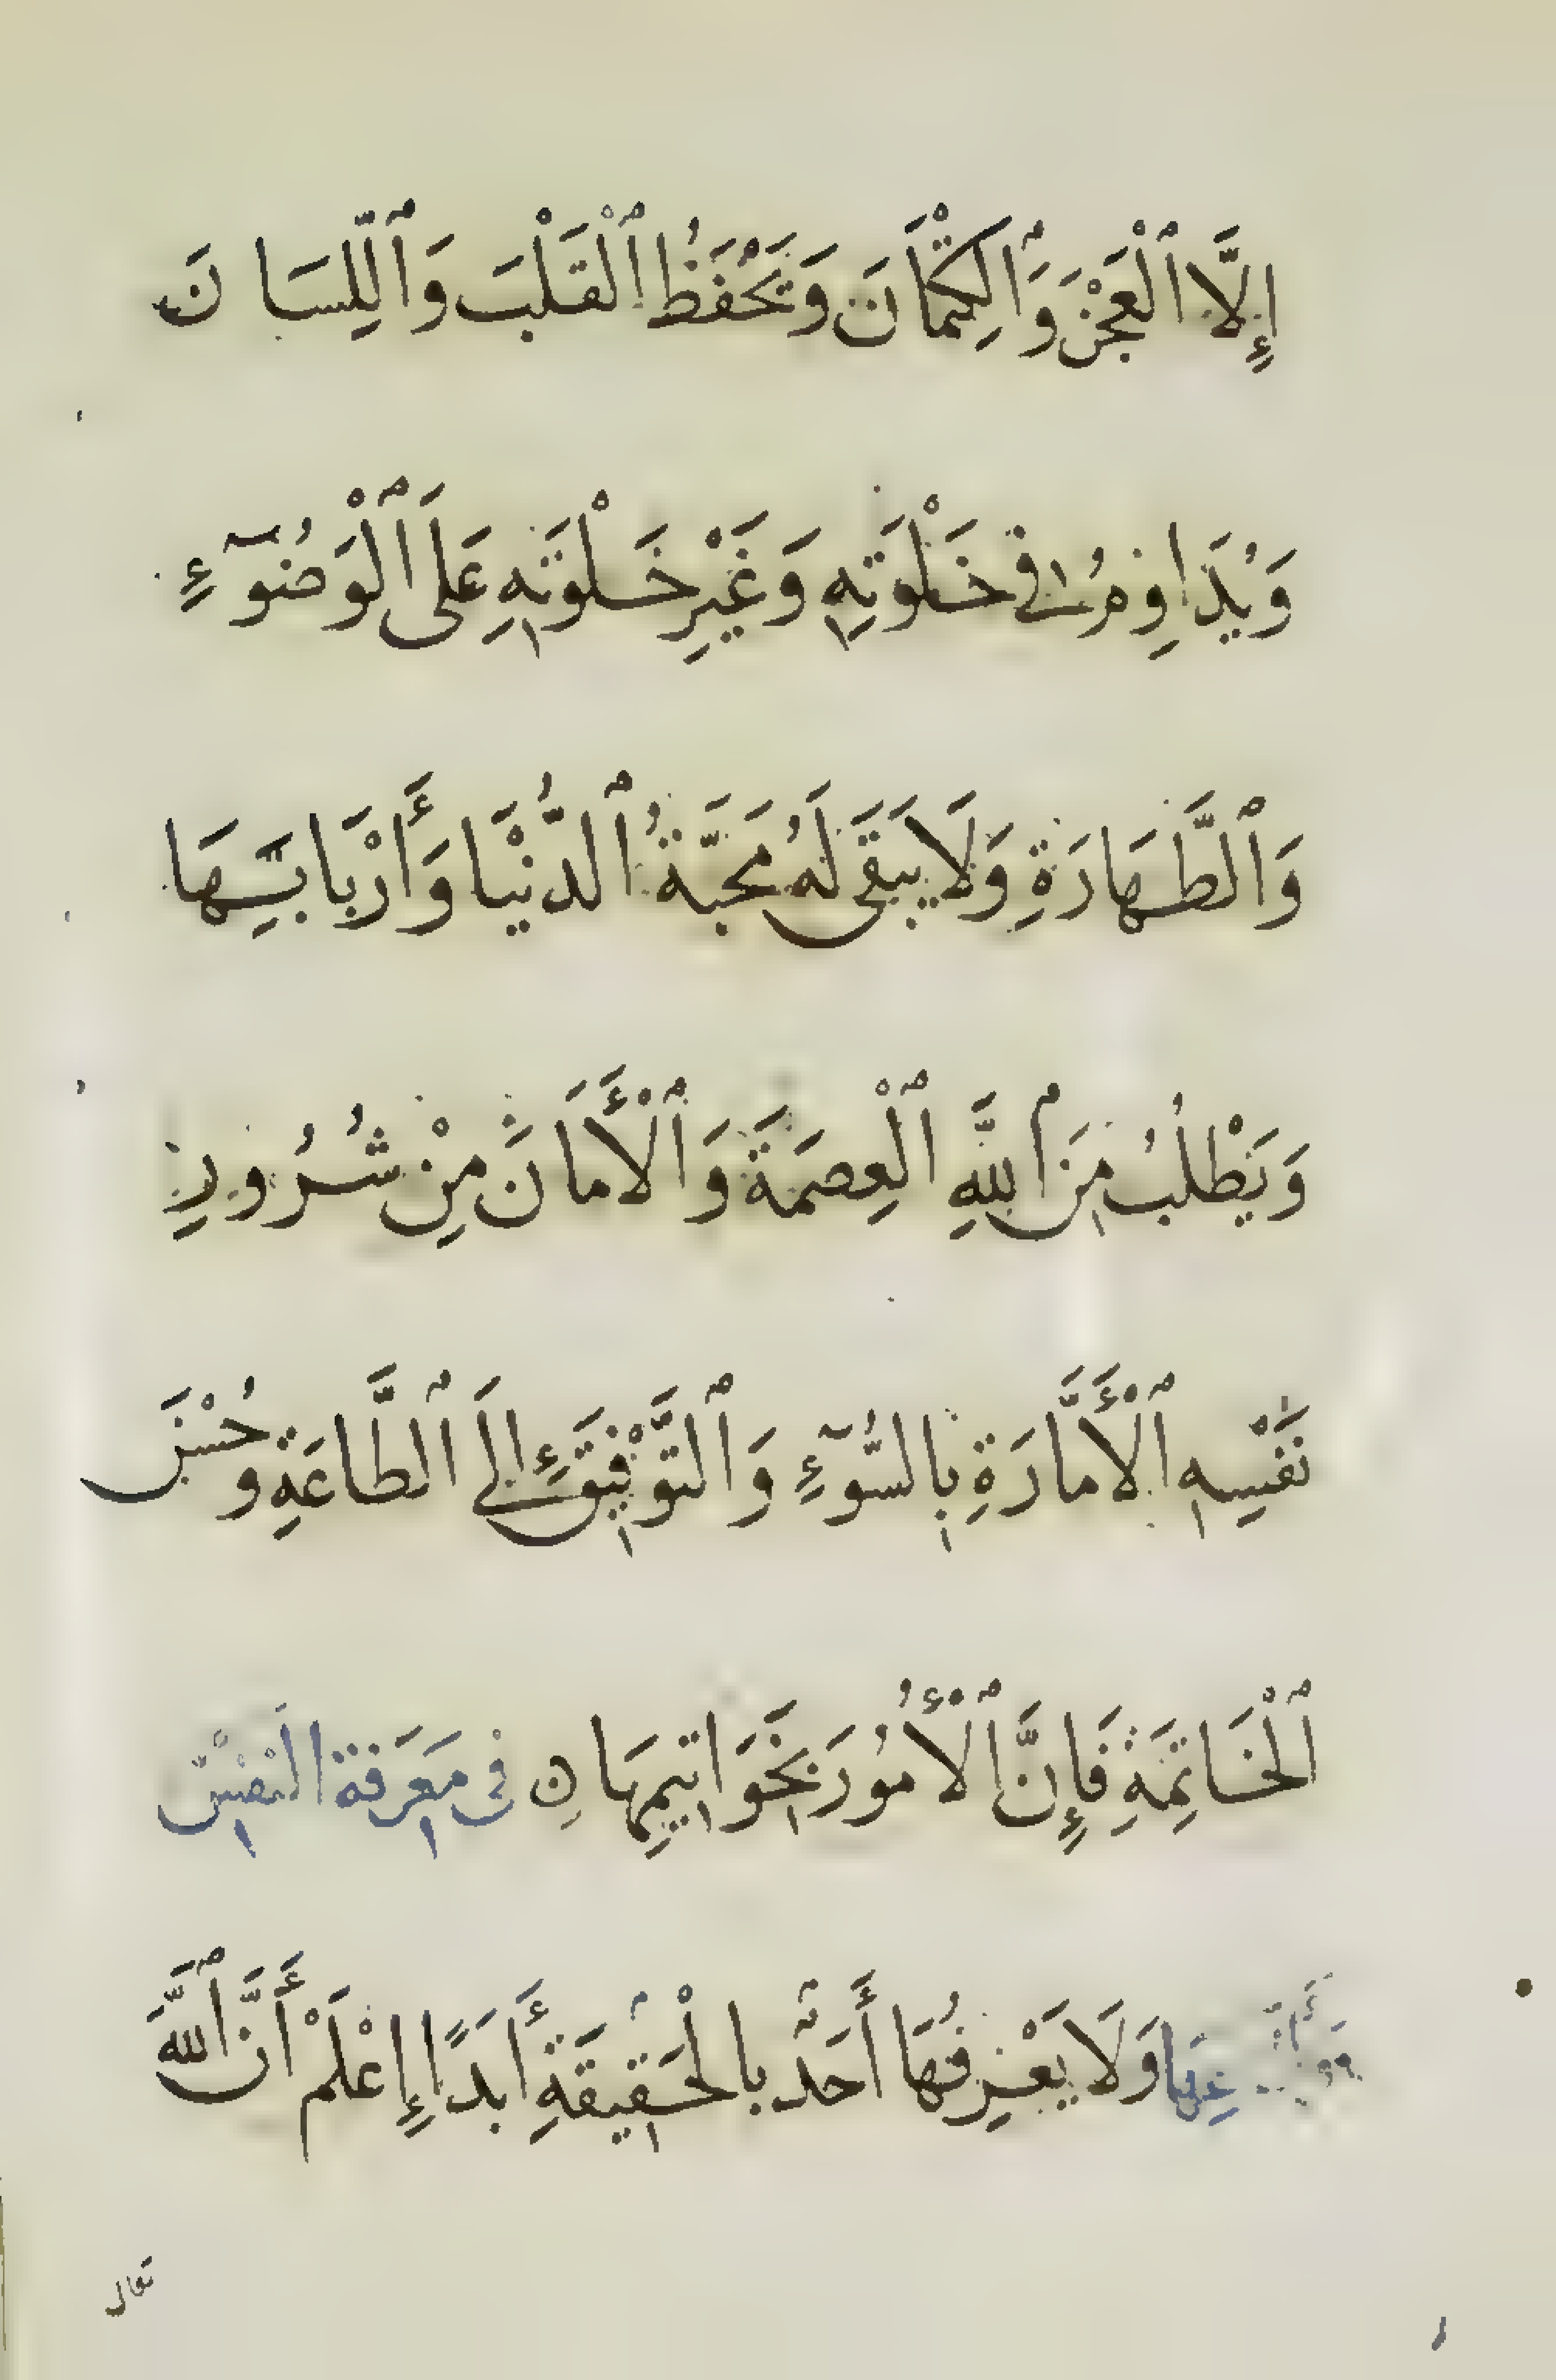 إِلَّا ٱلْعَجْزَ وَٱلكِتْمَانَ وَتَحْفَظُ ٱلْقَلْبَ وَٱللِّسَانَ
وَيُدَاوِمُ فِي خَلْوَتِهِ وَغَيْرِ خَلْوَتِهِ عَلَى ٱلْوَضُوٓءِ
وَٱلطَّهَارَةِ وَلَا يَبْقَى لَهُ مَحَبَّةُ ٱلدُّنْيَا وَأَرْبَابِهَا
وَيَطْلُبُ مِنَ ٱللّهِ ٱلْعِصْمَةَ وَٱلْأَمَانَ مِنْ شُرُورِ
نَفْسِهِ ٱلْأَمَّارَةِ بِالسُّوٓءِ وَٱلتَّوْفِيقَ إِلَى ٱلطَّاعَةِ وَحُسْنَ
ٱلْخَاتِمَةِ فَإِنَّ ٱلْأُمُورَ بِخَوَاتِيمِهَا فِي مَعْرِفَةِ النَّفْسِ
وَلَا يَعْرِفُهَا أَحَدٌ بِالْحَقِيقَةِ أَبَدًا إِعْلَمْ أَنَّ ٱللَّهَ
تعالى